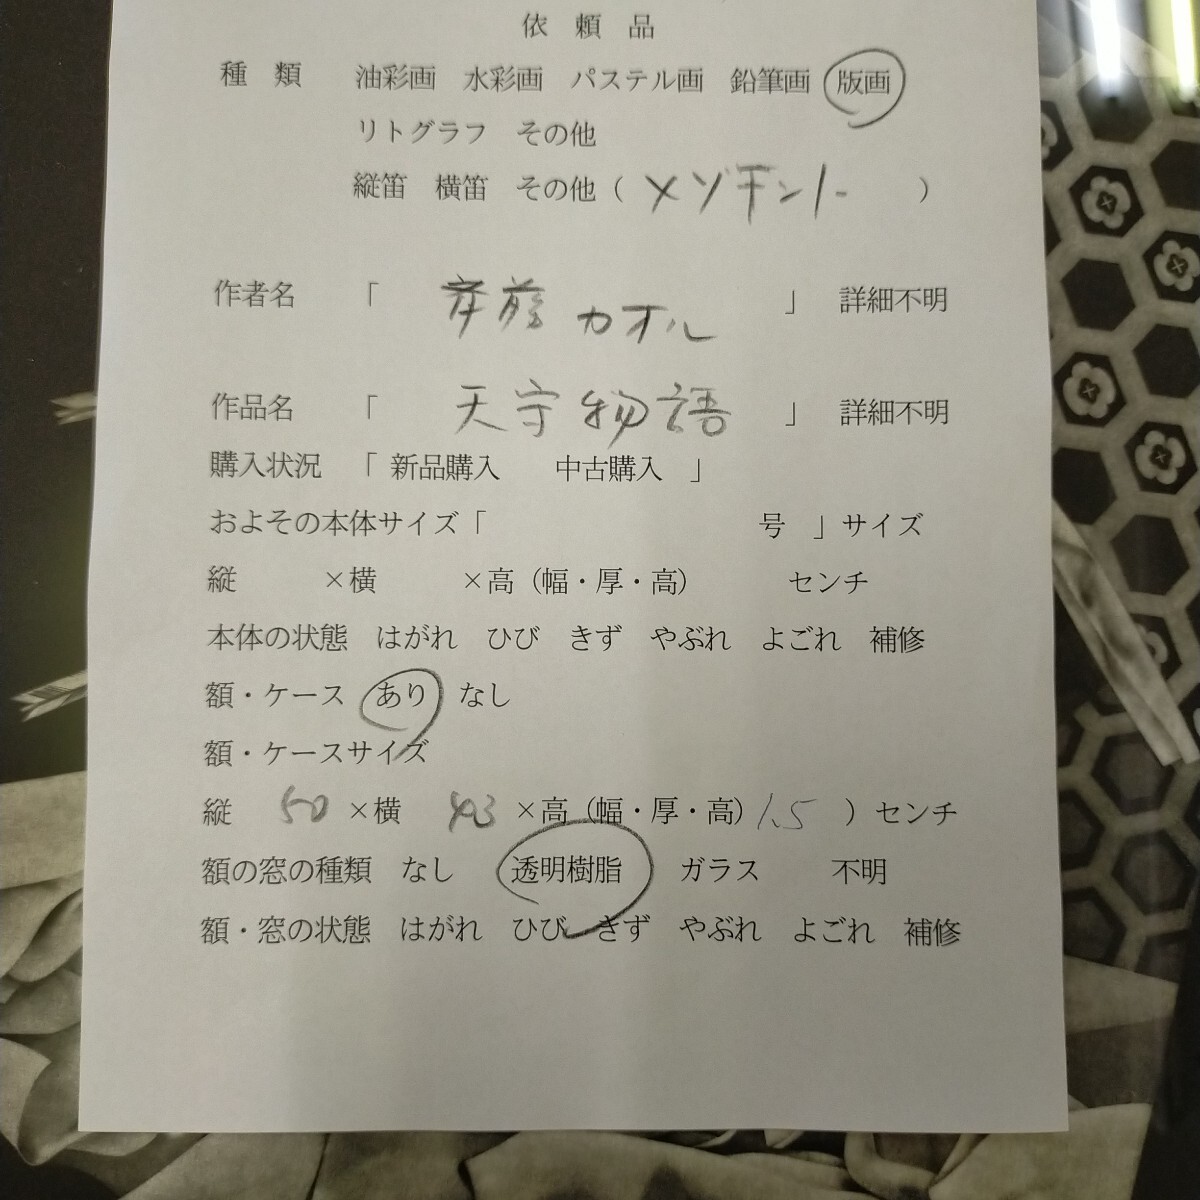 依頼品
種類 油彩画 水彩画 パステル画 鉛筆画 版画
リトグラフ その他
縦笛 横笛 その他（ メゾチント ）
作者名 「 斉藤 カオル 」 詳細不明
作品名 「 天守物語 」 詳細不明
購入状況 「 新品購入 中古購入 」
およその本体サイズ「 号 」サイズ
縦 ×横 ×高（幅・厚・高） センチ
本体の状態 はがれ ひび きず やぶれ よごれ 補修
額・ケース あり なし
額・ケースサイズ
縦 50 ×横 43 ×高（幅・厚・高）1.5 ）センチ
額の窓の種類 なし 透明樹脂 ガラス 不明
額・窓の状態 はがれ ひび きず やぶれ よごれ 補修